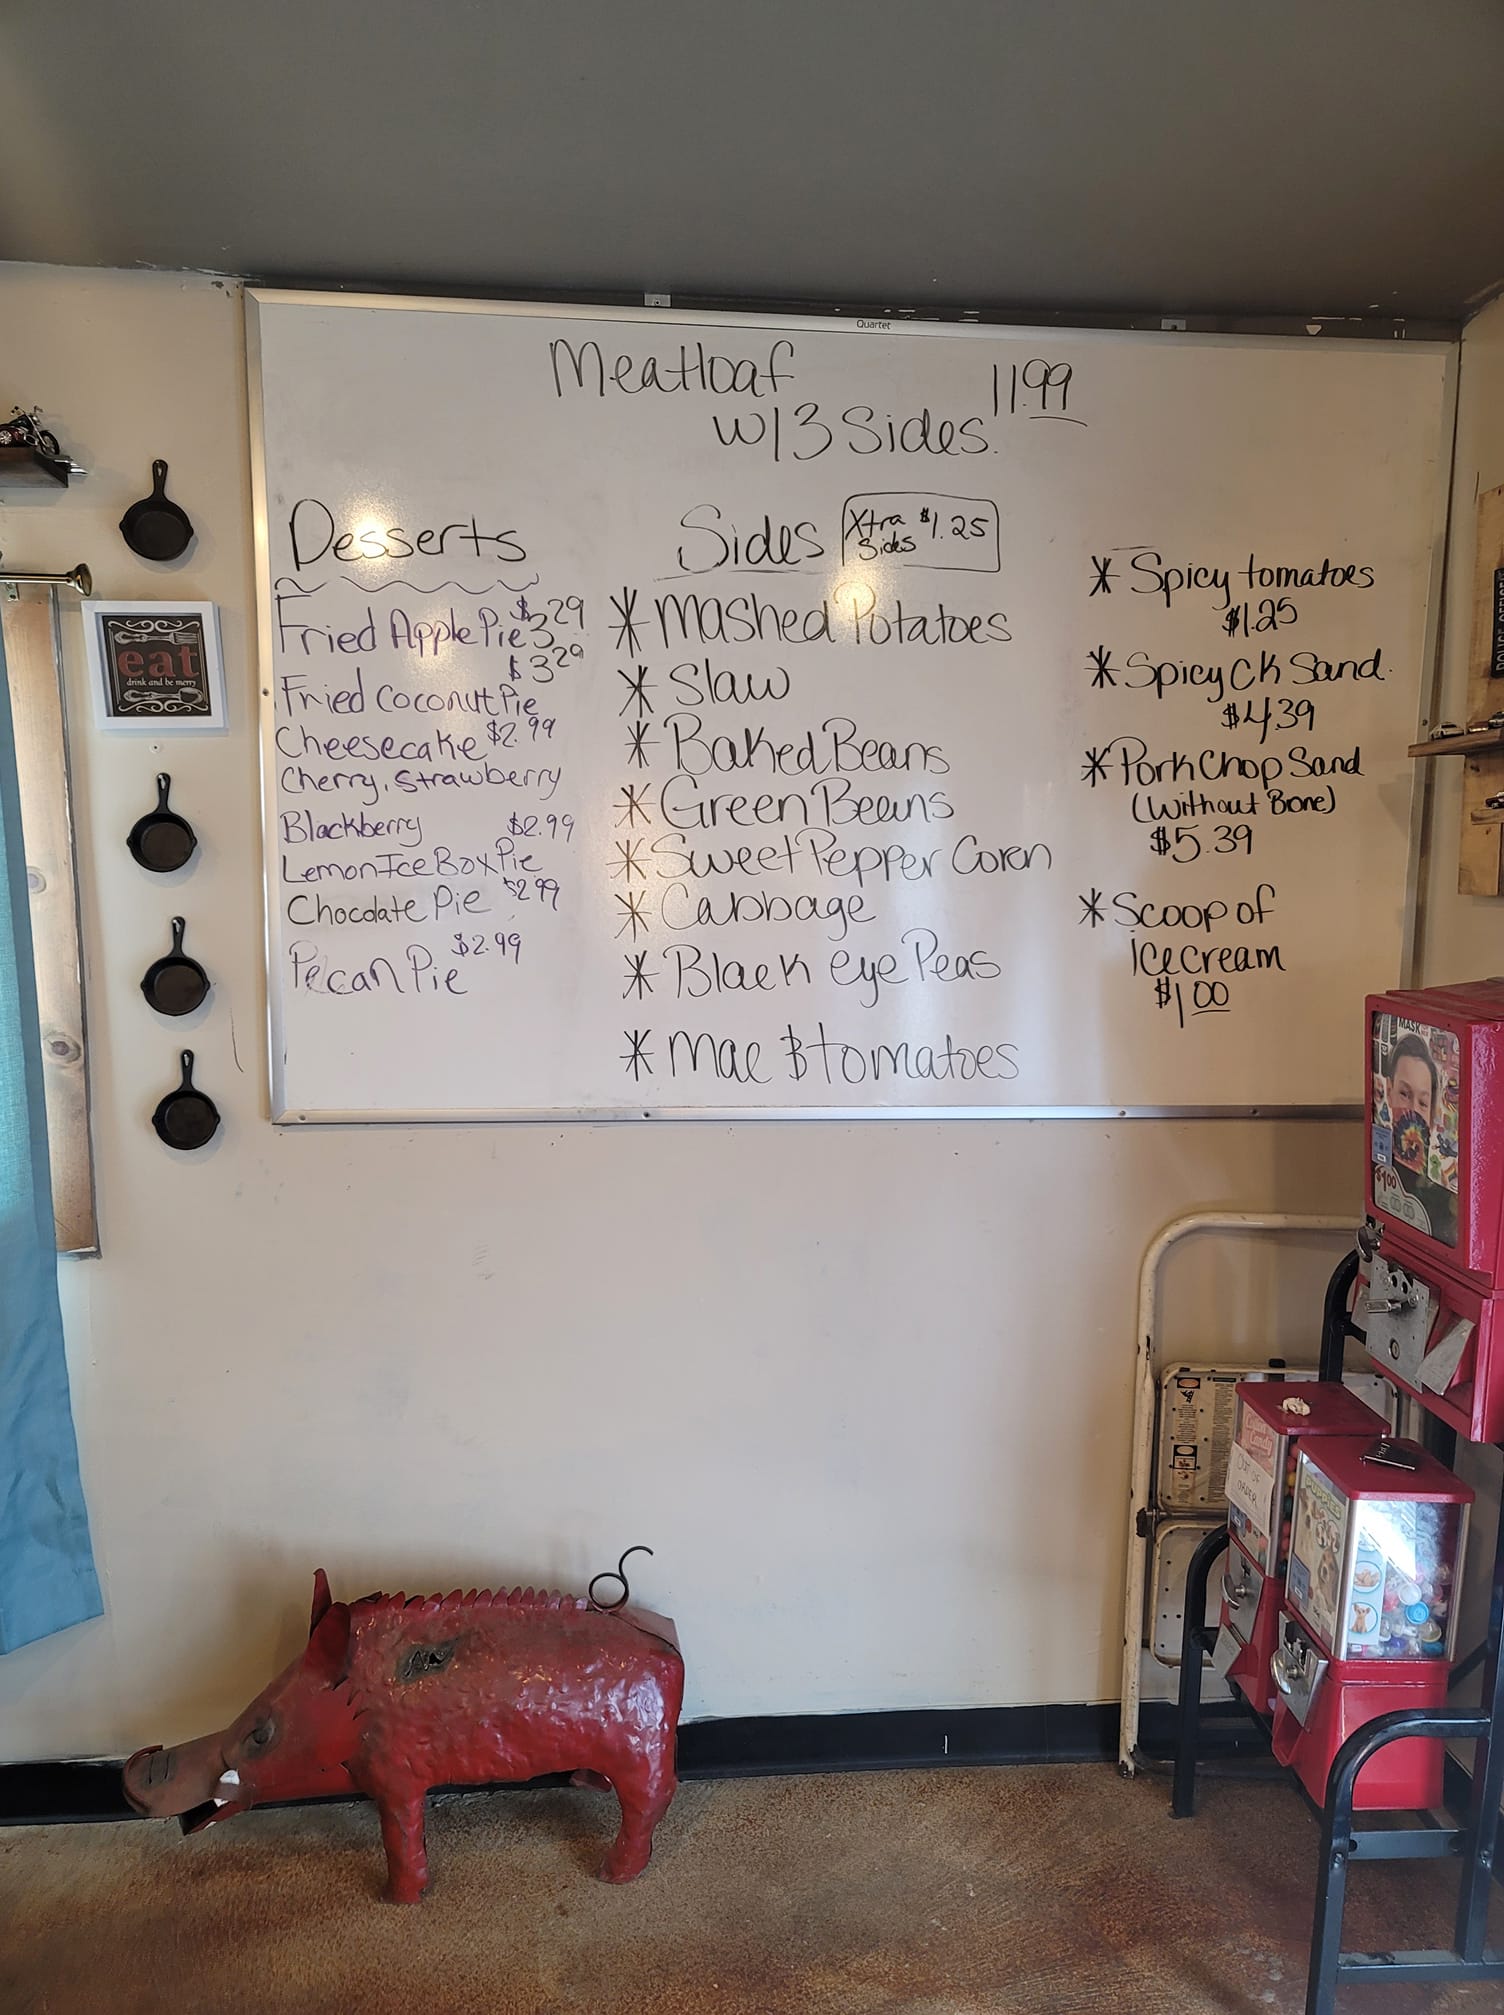 Quartet
Meatloaf 11.99
w/3 Sides.
Desserts
Fried Apple Pie $3.29
$3.29
Fried Coconut Pie
Cheesecake $2.99
Cherry, Strawberry
Blackberry $2.99
Lemon Ice Box Pie
Chocolate Pie $2.99
Pecan Pie $2.99
Sides
Xtra $1.25
Sides
* Mashed Potatoes
* Slaw
* Baked Beans
* Green Beans
* Sweet Pepper Corn
* Cabbage
* Black eye Peas
* Mac & tomatoes
* Spicy tomatoes
$1.25
* Spicy Ck Sand.
$4.39
* Pork Chop Sand
(Without Bone)
$5.39
* Scoop of
Ice cream
$1.00
eat
drink and be merry
MASK
$1.00
OUT OF
ORDER
PUPPIES